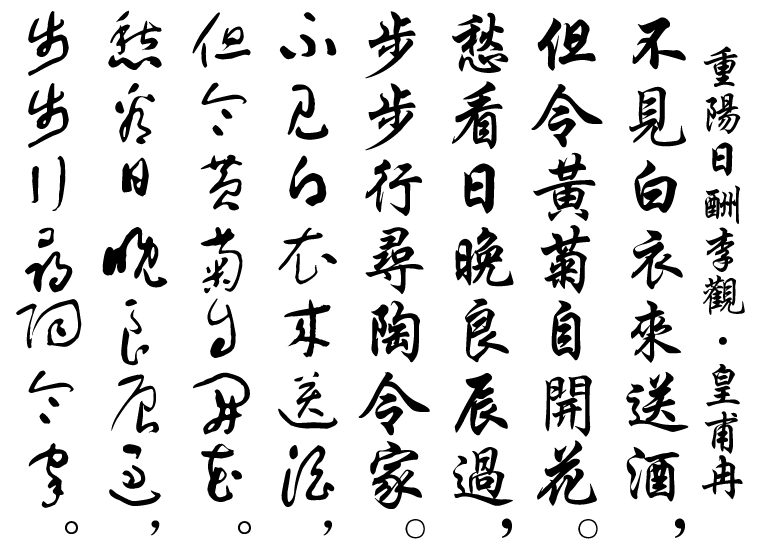 重陽日酬李觀・皇甫冉
不見白衣來送酒，
但令黃菊自開花。
愁看日晚良辰過，
步步行尋陶令家。
不見白衣來送酒，
但令黃菊自開花。
愁看日晚良辰過，
步步行尋陶令家。